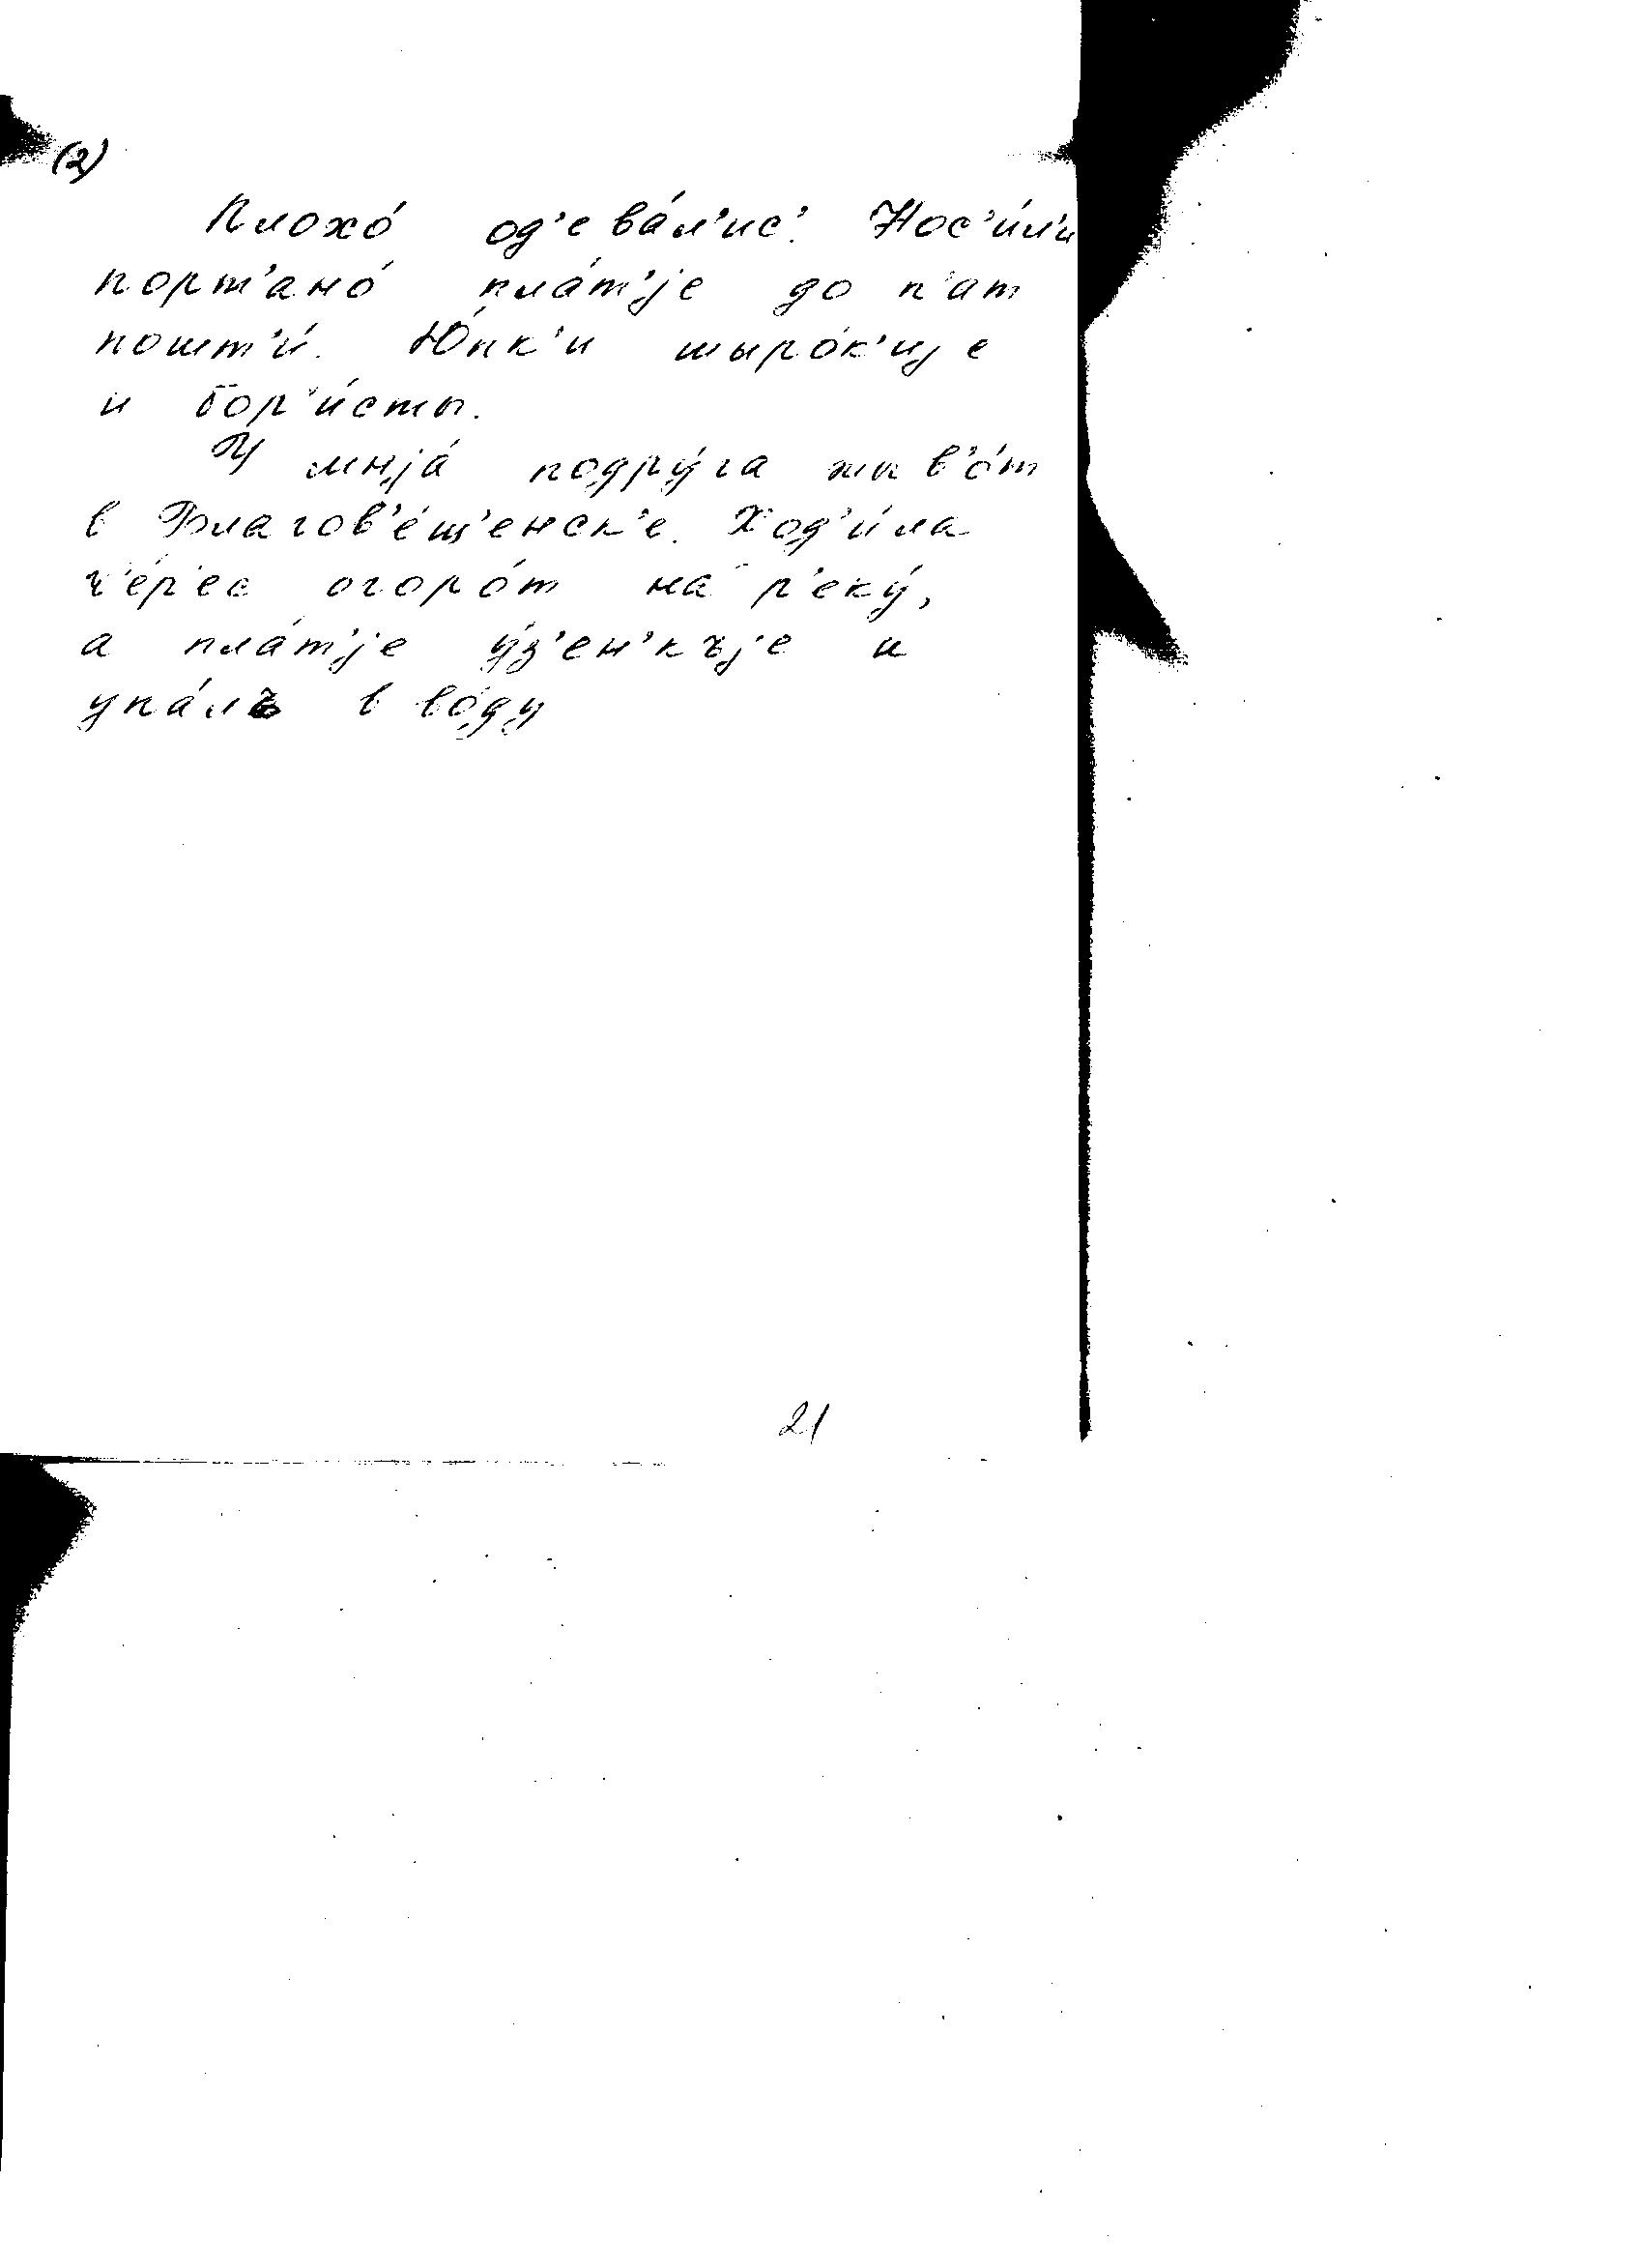 (2)
Плохо́ од'ева́л'ис'. Нос'и́л'и
порт'ано́ пла́т'jе до п'ат
пошт'и́. Ю́пк'и шыро́к'иjе
и бор'и́сты.
У мнjа́ подру́га жыв'о́т
в Благов'е́щ'енск'е. Ход'и́ла
ч'е́р'ес огоро́т на р'еку́,
а пла́т'jе у́з'ен'къjе и
упа́лъ в во́ду
21